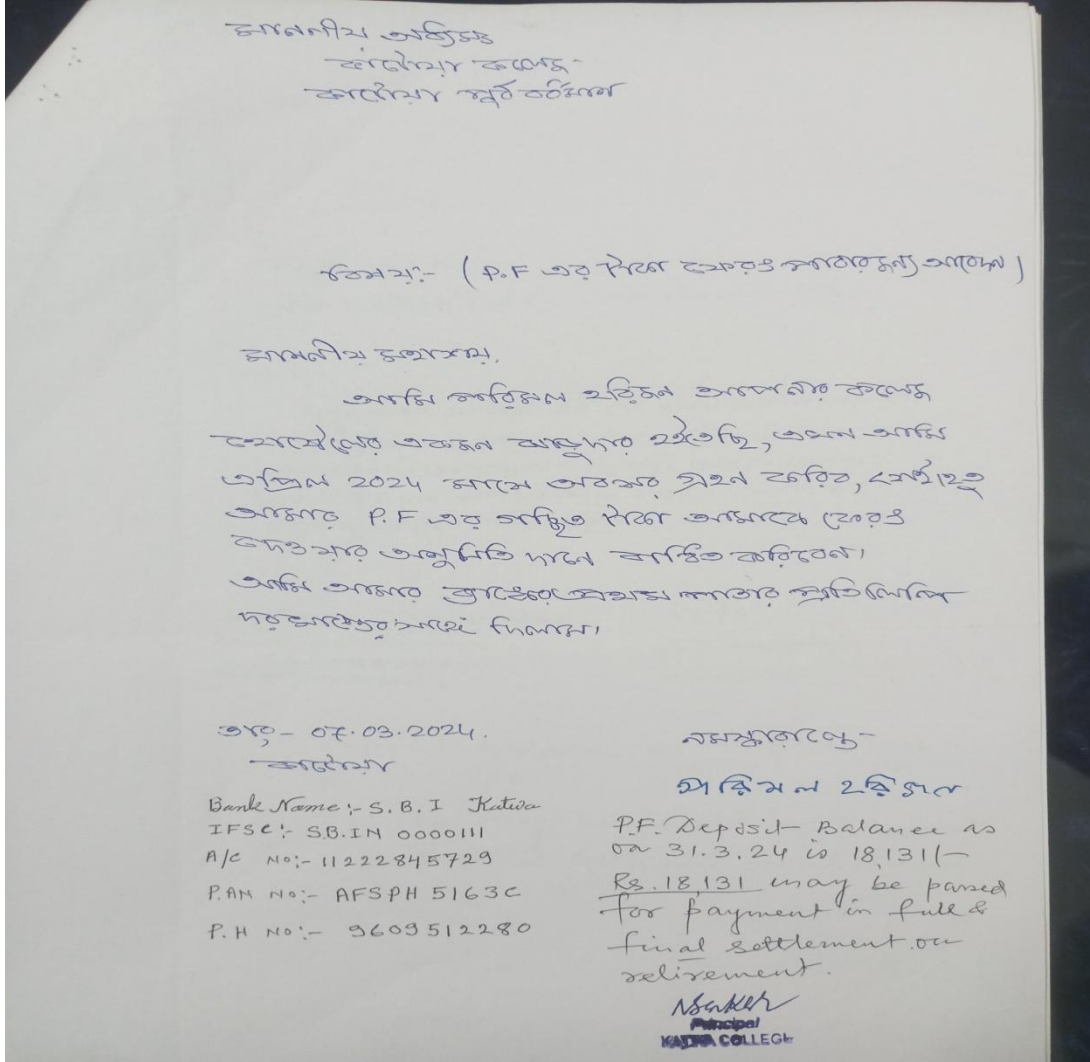 মাননীয় অধ্যক্ষ
কাটোয়া কলেজ-
কাটোয়া পূর্ব বর্ধমান
বিষয়:- ( P.F এর টাকা ফেরৎ পাবার জন্য আবেদন )
মাননীয় মহাশয়,
আমি পরিমল হরিজন আপনার কলেজ
হোস্টেলের একজন ঝাড়ুদার হইতেছি, এখন আমি
এপ্রিল 2024 মাসে অবসর গ্রহন করিব, সেইহেতু
আমার P.F এর সঞ্চিত টাকা আমাকে ফেরৎ
দেওয়ার অনুমিতি দানে বাধিত করিবেন।
আমি আমার ব্যাঙ্কের প্রথম পাতার প্রতিলিপি
দরখাস্তের সাথে দিলাম।
তাং- 07.03.2024.
কাটোয়া
নমস্কারান্তে-
পরিমল হরিজন
Bank Name:- S.B.I Katwa
IFSC:- S.B.IN 0000111
A/C No:- 11222845729
P.AN No:- AFSPH 5163C
P.H NO:- 9609512280
P.F. Deposit Balance as
on 31.3.24 is 18,131/-
Rs. 18,131 may be passed
for payment in full &
final settlement on
retirement.
Principal
KATWA COLLEGE